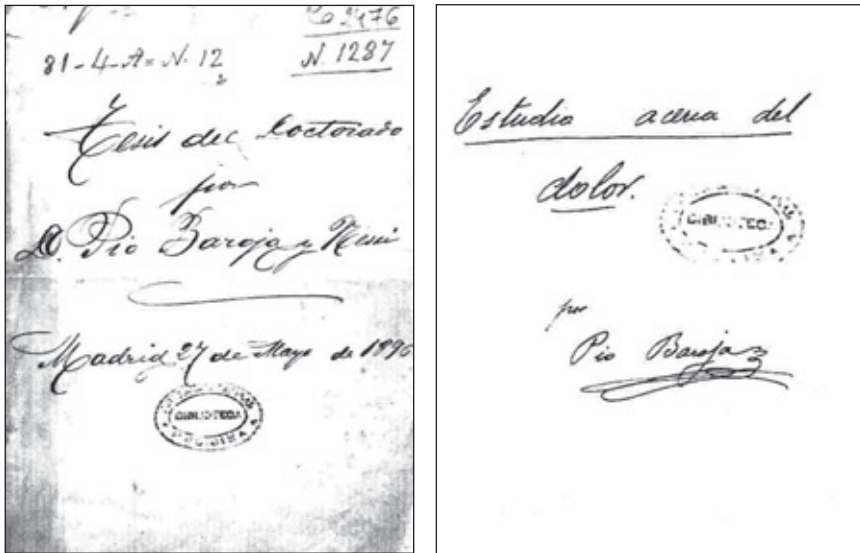 Ca 2476
81-4-A = N. 12
N. 1287
2
Tesis del Doctorado
por
D. Pio Baroja y Nessi
Madrid 27 de Mayo de 1896
BIBLIOTECA
MEDICINA
Estudio acerca del
dolor.
BIBLIOTECA
por
Pio Baroja